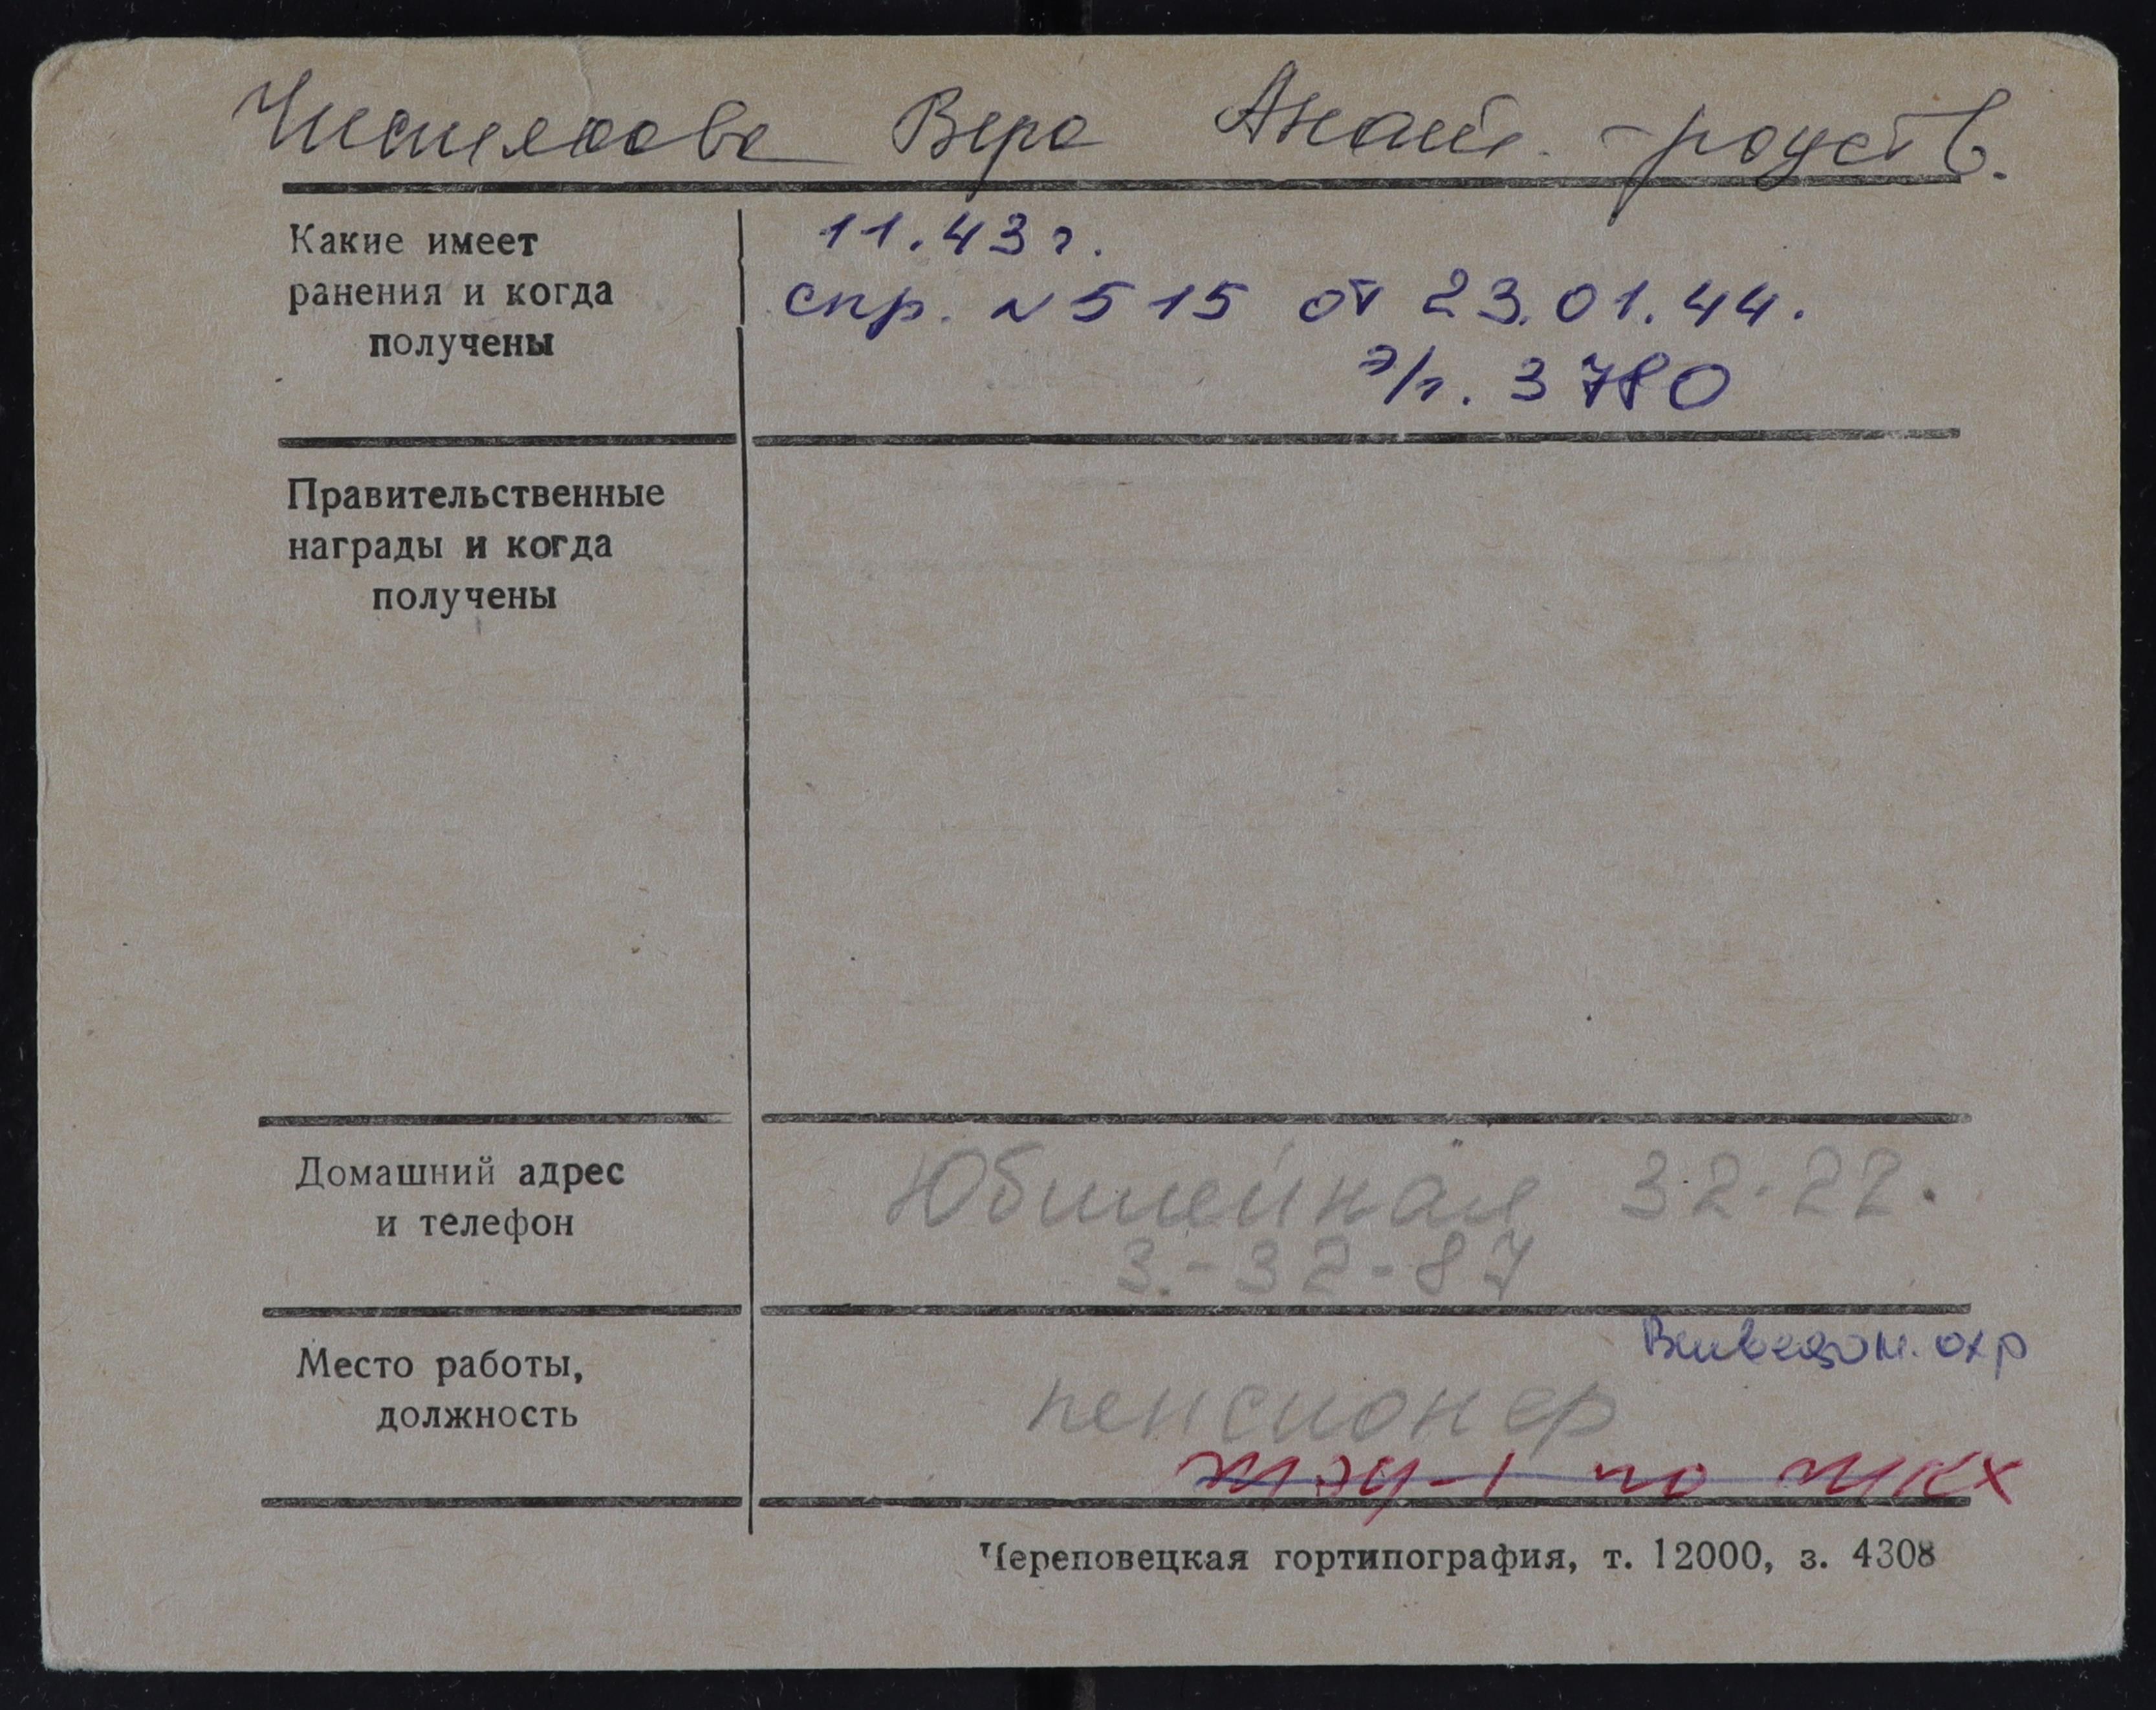 Вера Анат. - родств.
Какие имеет
ранения и когда
получены
11.43 г.
спр. N 515 от 23.01.44.
э/г. 3780
Правительственные
награды и когда
получены
Домашний адрес
и телефон
Юбилейная 32-22.
3-32-87
Место работы,
должность
Вневедом. охр
пенсионер
ЖЭУ-1 по ЖКХ
Череповецкая гортипография, т. 12000, з. 4308